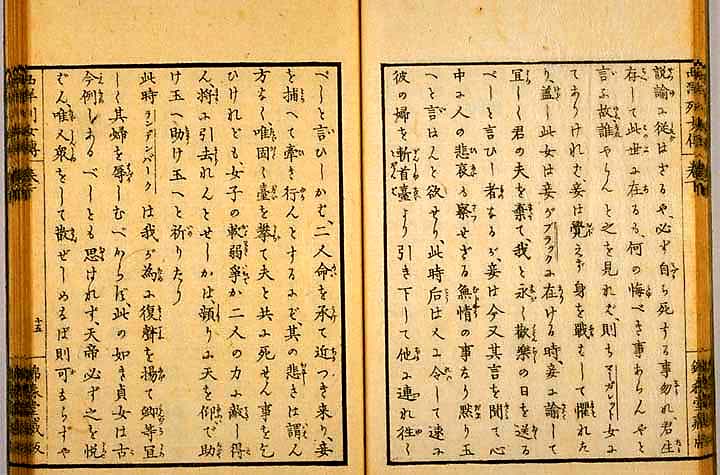 説諭に従はざるや、必ず自ら死する事勿れ、君生
存して此世に在るゝ、何の悔べき事あらんやと
言ふ故誰やらんと之を見れバ、則ちマーガレツト女に
てありけれむ、妾は覺えず身を戰るして懼れた
り、蓋し此女は妾がブラックに在ける時、妾に諭して
宜しく君の夫を棄て我と永く歡樂の日を送る
べしと言ひし者なるが、妾は今又其言を聞て心
中に人の悲哀を察せざる無情の事なり默り玉
へと言はんと欲せり、此時后は人に令して速に
彼の婦を斬首臺より引き下して他に連れ徃く
べしと言ひしかむ、二人命を承て近つき来り妾
を捕へて牽き行んとするにぞ、其の悲きは謂ん
方なく唯固く臺を攀て夫と共に死せん事を乞
ひけれども、女子の軟弱爭か二人の力に敵し得
ん、將に引去れんとせしかは、頻りに天を仰で助
け玉へ助け玉へと祈りたり
此時ランデンバーグは我が為に復聲を揚て卿等豆
しく其婦を辱しむべからば、此の如き貞女は古
今例しあるべしとも思けれず、天帝必ず之を悦
ばん、唯人衆をして散ぜしめるば則可ならずや
西洋列女傳 巻二
十五
錦森堂藏版